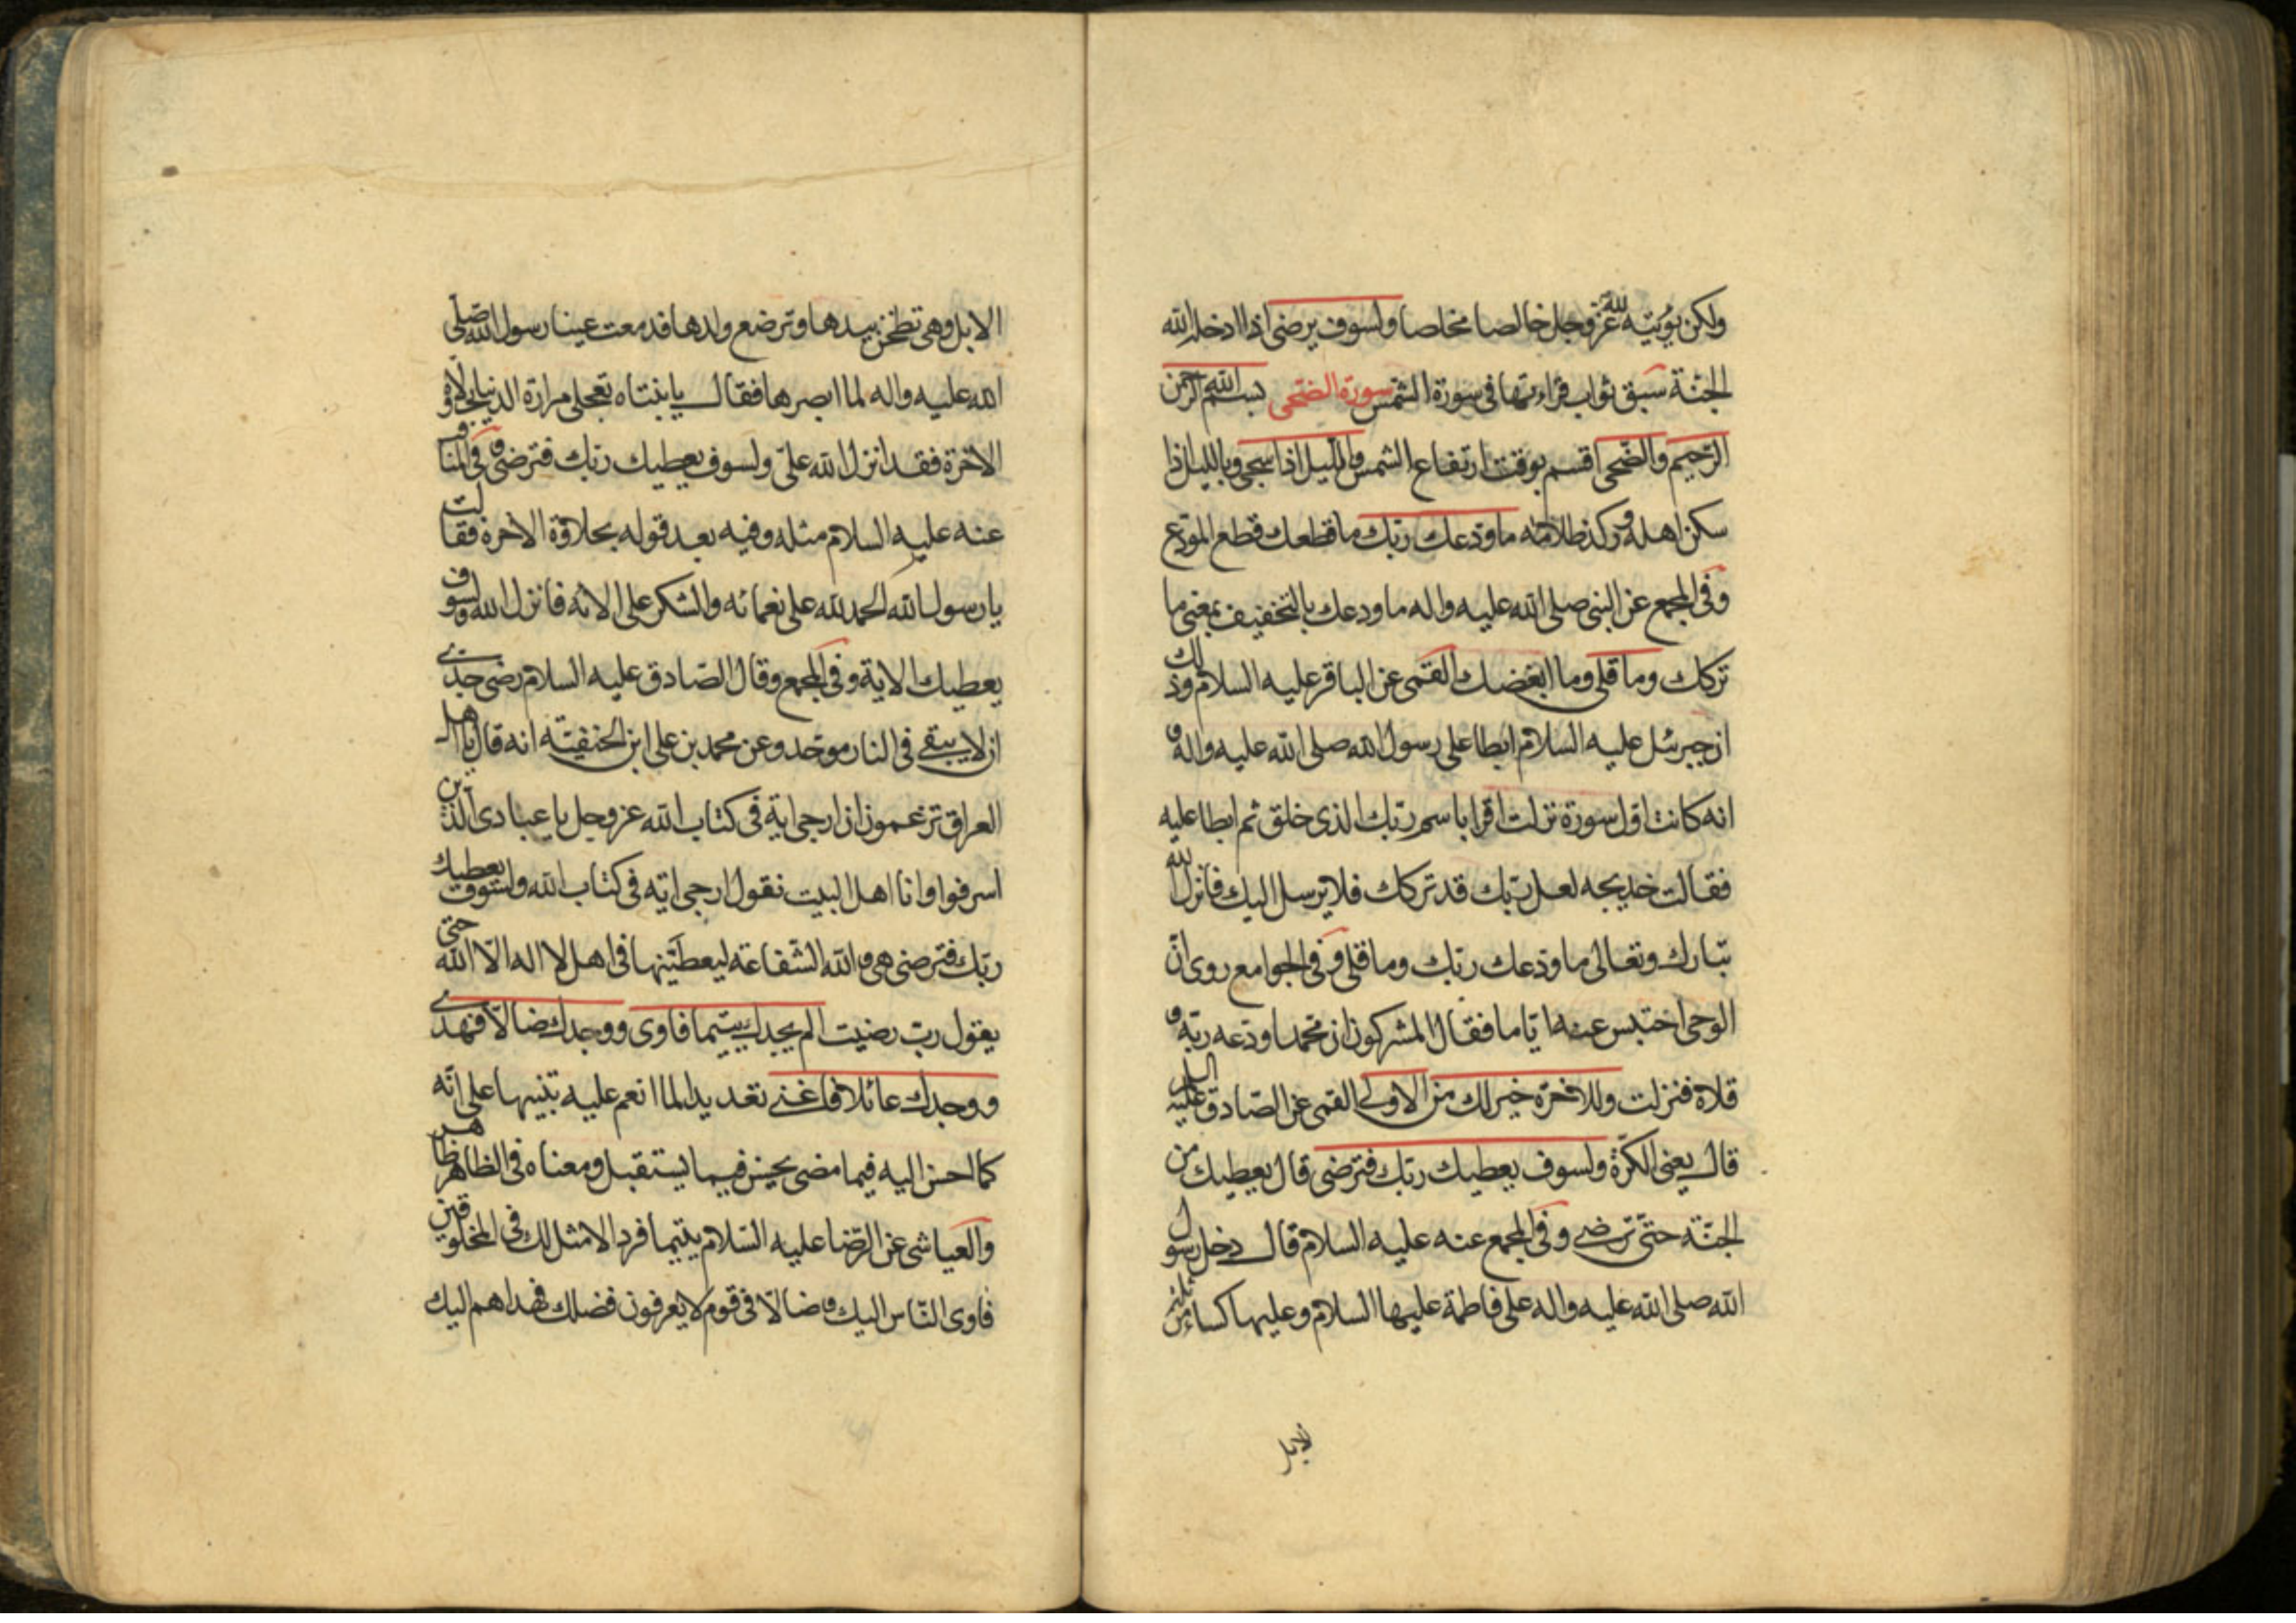 ولكن يؤتيه لله عز وجل خالصا مخلصا ولسوف يرضى اذا ادخله الله
الجنة سبق ثواب قراءتها فى سورة الشمس سورة الضحى بسم الله الرحمن
الرحيم والضحى اقسم بوقت ارتفاع الشمس والليل اذا سجى وبالليل اذا
سكن اهله وركد ظلامه ما ودعك ربك ما قطعك قطع المودع
وفى المجمع عن النبى صلى الله عليه واله ما ودعك بالتخفيف بمعنى ما
تركك وما قلى وما ابغضك القمى عن الباقر عليه السلام وذلك
ان جبرئل عليه السلام ابطا على رسول الله صلى الله عليه واله و
انه كانت اول سورة نزلت اقرا باسم ربك الذى خلق ثم ابطا عليه
فقالت خديجه لعل ربك قد تركك فلا يرسل اليك فانزل الله
تبارك وتعالى ما ودعك ربك وما قلى وفى الجوامع روى ان
الوحى احتبس عنه اياما فقال المشركون ان محمدا ودعه ربه و
قلاه فنزلت وللاخرة خير لك من الاولى القمى عن الصادق عليه السلم
قال يعنى الكرة ولسوف يعطيك ربك فترضى قال يعطيك من
الجنة حتى ترضى وفى المجمع عنه عليه السلام قال دخل رسول
الله صلى الله عليه واله على فاطمة عليها السلام وعليها كساء من ثلة
لابل
الابل وهى تطحن بيدها وترضع ولدها فدمعت عينا رسول الله صلى
الله عليه واله لما ابصرها فقال يا بنتاه تعجلى مرارة الدنيا بحلاوة
الاخرة فقد انزل الله على ولسوف يعطيك ربك فترضى وفى المناقب
عنه عليه السلام مثله وفيه بعد قوله بحلاوة الاخرة فقالت
يا رسول الله الحمد لله على نعمائه والشكر على الائه فانزل الله ولسوف
يعطيك الاية وفى المجمع وقال الصادق عليه السلام رضى جدى
ان لا يبقى فى النار موحد وعن محمد بن على ابن الحنفيته انه قال يا اهل
العراق تزعمون ان ارجى اية فى كتاب الله عز وجل يا عبادى الذين
اسرفوا وانا اهل البيت نقول ارجى اية فى كتاب الله ولسوف يعطيك
ربك فترضى هى والله الشفاعة ليعطينها فى اهل لا اله الا الله حتى
يقول رب رضيت الم يجدك يتيما فاوى ووجدك ضالا فهدى
ووجدك عائلا فاغنى تعديد لما انعم عليه تنبيها على انه
كما احسن اليه فيما مضى يحسن فيما يستقبل ومعناه فى الظاهر ظاهر
والعياشى عن الرضا عليه السلام يتيما فردا لا مثل لك فى المخلوقين
فاوى الناس اليك وضالا فى قوم لا يعرفون فضلك فهداهم اليك